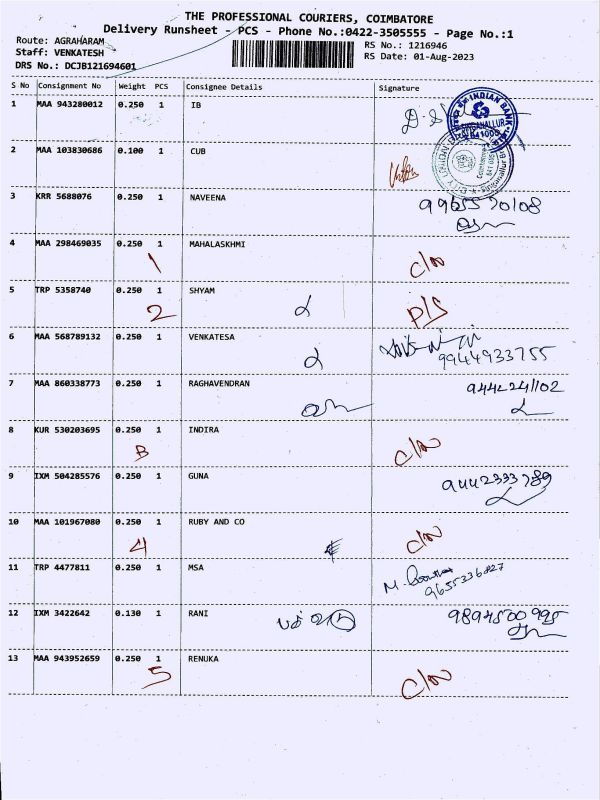 THE PROFESSIONAL COURIERS, COIMBATORE
Delivery Runsheet - PCS - Phone No.:0422-3505555 - Page No.:1
Route: AGRAHARAM
RS No.: 1216946
Staff: VENKATESH
RS Date: 01-Aug-2023
DRS No.: DCJB121694601
S No Consignment No Weight PCS Consignee Details Signature
1 MAA 943280012 0.250 1 IB
INDIAN BANK
SINGANALLUR
641005
2 MAA 103830686 0.100 1 CUB
CITY UNION BANK
Coimbatore
641 005
Singanallur
3 KRR 5688076 0.250 1 NAVEENA 9965570108
4 MAA 298469035 0.250 1 MAHALASKHMI C/N
1
5 TRP 5358740 0.250 1 SHYAM P/S
2
6 MAA 568789132 0.250 1 VENKATESA 9944933755
7 MAA 860338773 0.250 1 RAGHAVENDRAN 9442241102
8 KUR 530203695 0.250 1 INDIRA C/N
3
9 IXM 504285576 0.250 1 GUNA 9442333789
10 MAA 101967080 0.250 1 RUBY AND CO C/N
4
11 TRP 4477811 0.250 1 MSA 9655336827
12 IXM 3422642 0.130 1 RANI 9894500995
13 MAA 943952659 0.250 1 RENUKA C/N
5